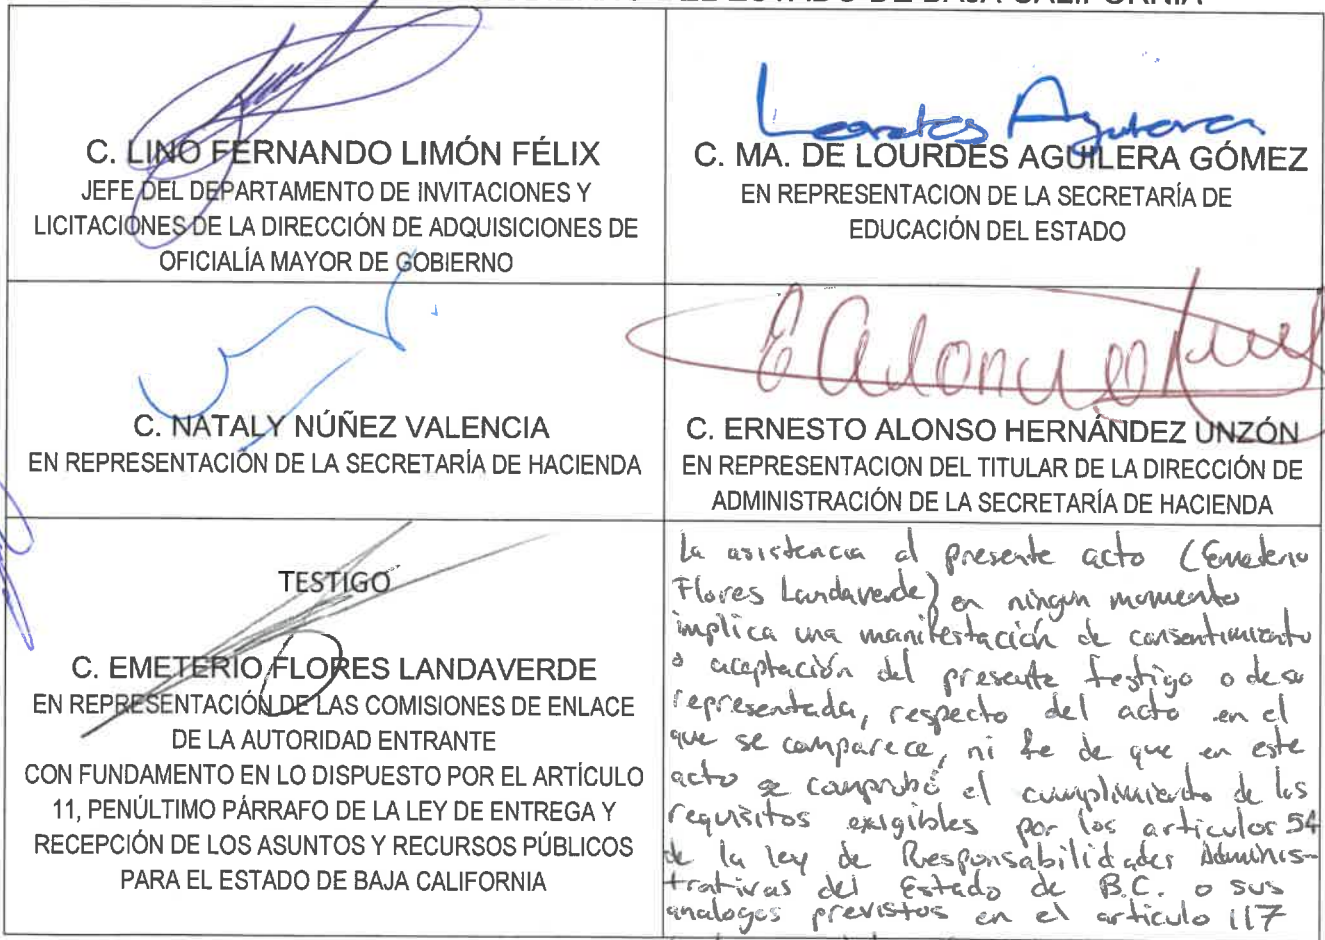 C. LINO FERNANDO LIMÓN FÉLIX
JEFE DEL DEPARTAMENTO DE INVITACIONES Y
LICITACIONES DE LA DIRECCIÓN DE ADQUISICIONES DE
OFICIALÍA MAYOR DE GOBIERNO
Lourdes Aguilera
C. MA. DE LOURDES AGUILERA GÓMEZ
EN REPRESENTACION DE LA SECRETARÍA DE
EDUCACIÓN DEL ESTADO
C. NATALY NÚÑEZ VALENCIA
EN REPRESENTACIÓN DE LA SECRETARÍA DE HACIENDA
C. ERNESTO ALONSO HERNÁNDEZ UNZÓN
EN REPRESENTACION DEL TITULAR DE LA DIRECCIÓN DE
ADMINISTRACIÓN DE LA SECRETARÍA DE HACIENDA
TESTIGO
C. EMETERIO FLORES LANDAVERDE
EN REPRESENTACIÓN DE LAS COMISIONES DE ENLACE
DE LA AUTORIDAD ENTRANTE
CON FUNDAMENTO EN LO DISPUESTO POR EL ARTÍCULO
11, PENÚLTIMO PÁRRAFO DE LA LEY DE ENTREGA Y
RECEPCIÓN DE LOS ASUNTOS Y RECURSOS PÚBLICOS
PARA EL ESTADO DE BAJA CALIFORNIA
La asistencia al presente acto (Emeterio
Flores Landaverde) en ningun momento
implica una manifestación de consentimiento
o aceptación del presente testigo o de su
representada, respecto del acto en el
que se comparece, ni fe de que en este
acto se comprobó el cumplimiento de los
requisitos exigibles por los articulos 54
de la ley de Responsabilidades Adminis-
trativas del Estado de B.C. o sus
analogos previstos en el articulo 117